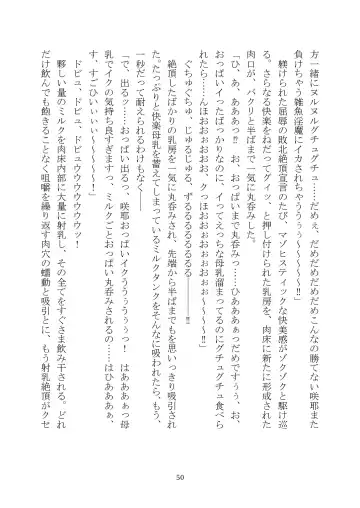 方一緒にヌルヌルグチュグチュ……だめぇ、だめだめだめだめこんなの勝てない咲耶また
負けちゃう雑魚淫魔にイカされちゃうぅぅ〜〜〜〜〜!!」
躾けられた屈辱の敗北絶頂宣言のたび、マゾヒスティックな快美感がゾクゾクと駆け巡
る。さらなる快楽をねだってグイッ、と押し付けられた乳房を、肉床に新たに形成された
肉口が、パクリと半ばまで一気に丸呑みした。
「ひ、あ、あああっ!?　お、おっぱいまで丸呑みっ……ひあああぁっだめですぅぅ、お、
おっぱいイッたばっかりなのに、イってえっちな母乳溜まってるのにグチュグチュ食べら
れたら……んほぉぉぉおおお、クっほおおぉぉおおおぉぉおぉぉぉ〜〜〜〜!!」
ぐちゅぐちゅ、じゅるじゅる、ずるるるるるるる――――!!
絶頂したばかりの乳房を一気に丸呑みされ、先端から半ばまでも思いっきり吸引され
た。たっぷりと快楽母乳を蓄えてしまっているミルクタンクをそんなに吸われたら、もう、
一秒だって耐えられるわけもなく――
「で、出るッ……おっぱい出るっ、咲耶おっぱいイクううぅぅぅぅっ！　はああああぁっ母
乳でイクの気持ち良すぎますっ、ミルクごとおっぱい丸呑みされるの……はひああああぁ、
す、すごひいぃぃぃ〜〜〜〜〜！」
ドビュ、ドビュ、ドビュウウウウウウウッ！
夥しい量のミルクを肉床内部に大量に射乳し、その全てをすぐさま飲み干される。どれ
だけ飲んでも飽きることなく咀嚼を繰り返す肉穴の蠕動と吸引とに、もう射乳絶頂がクセ
50